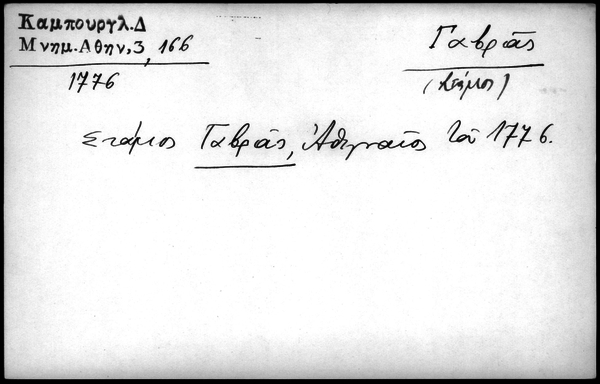 Καμπουργλ.Δ
Μνημ.Αθην,3, 166
1776
Γαβρᾶς
(Στάμος)
Στάμος Γαβρᾶς, Ἀθηναῖος τοῦ 1776.